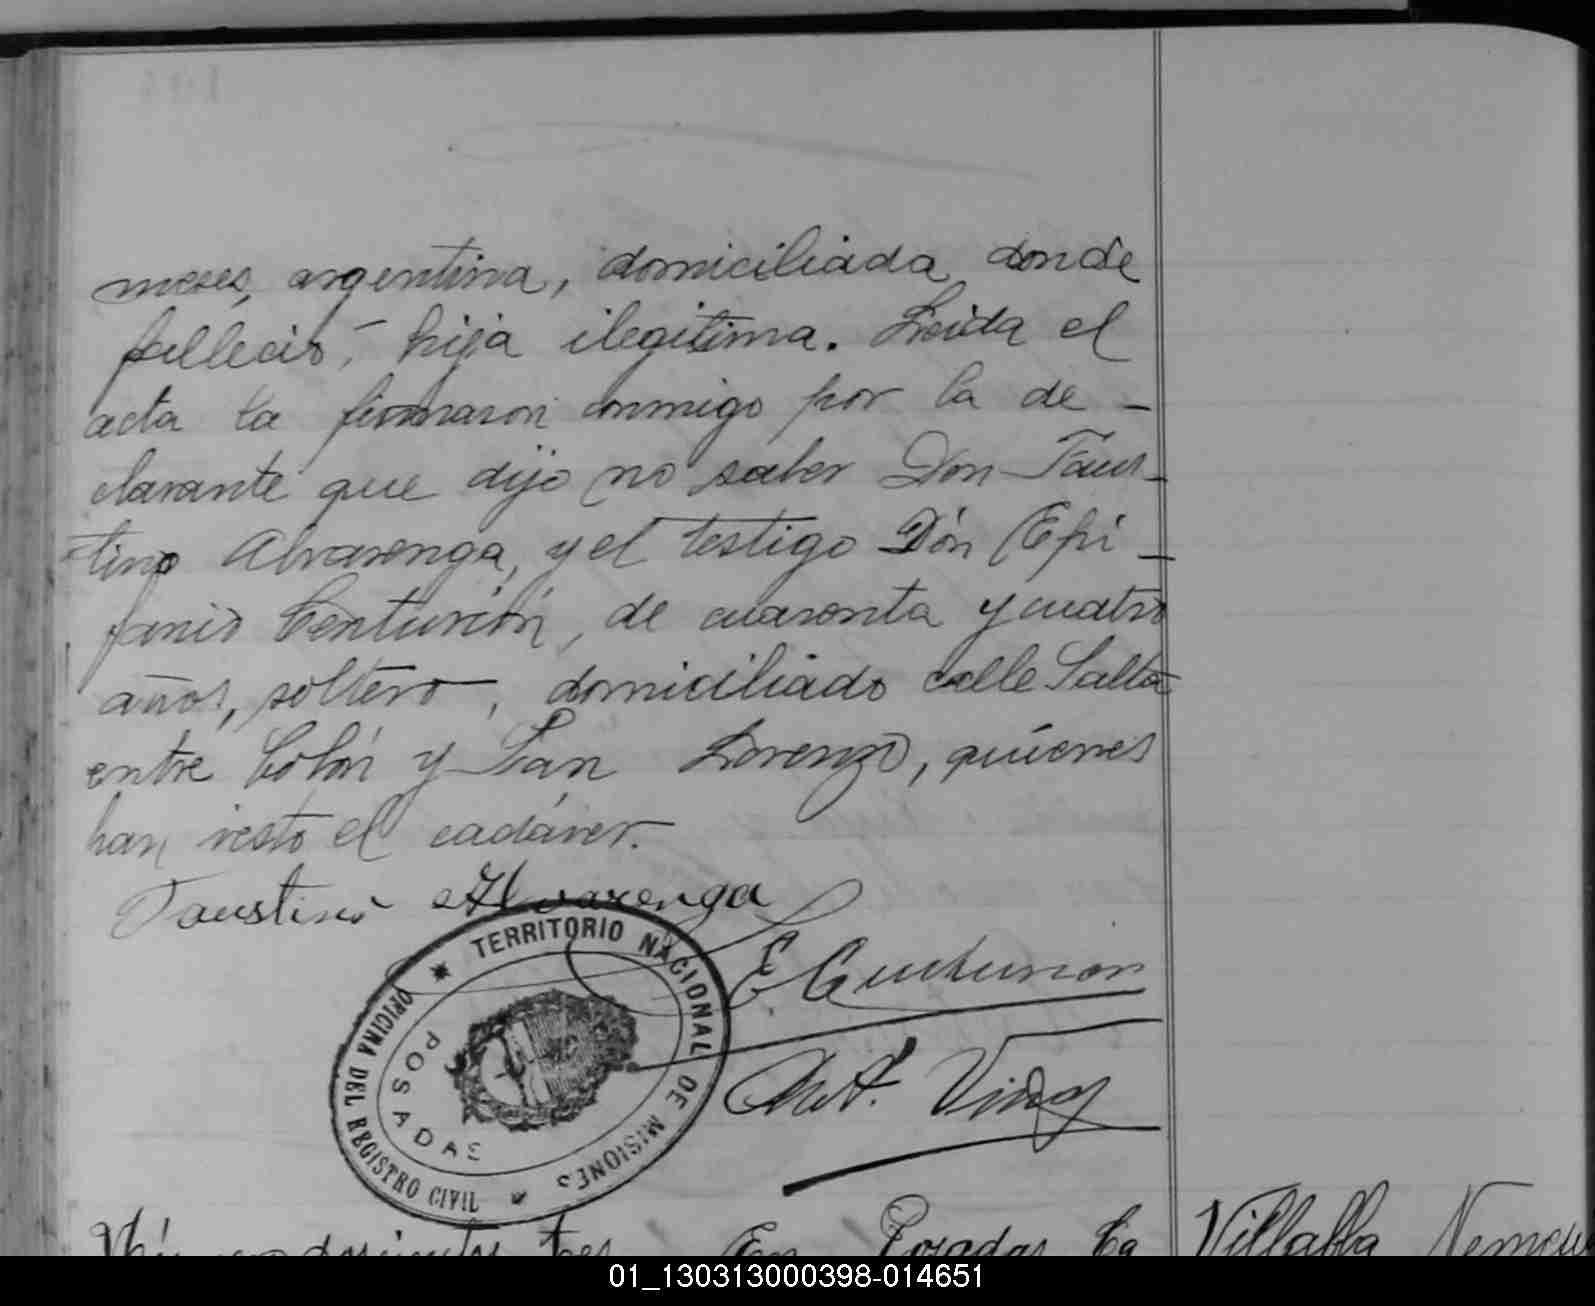 meses, argentina, domiciliada donde
fallecio, - hija ilegitima. Leida el
acta la firmaron conmigo por la de -
clarante que dijo no saber Don Faus -
tino Alvarenga, y el testigo Don Epi -
fanio Centurión, de cuarenta y cuatro
años, soltero, domiciliado calle Salta
entre Colón y San Lorenzo, quienes
han visto el cadáver.
Faustino Alvarenga
E Centurion
TERRITORIO NACIONAL DE MISIONES
OFICINA DEL REGISTRO CIVIL
POSADAS
Número doscientos tres En Posadas Ca
Villalba
01_130313000398-014651